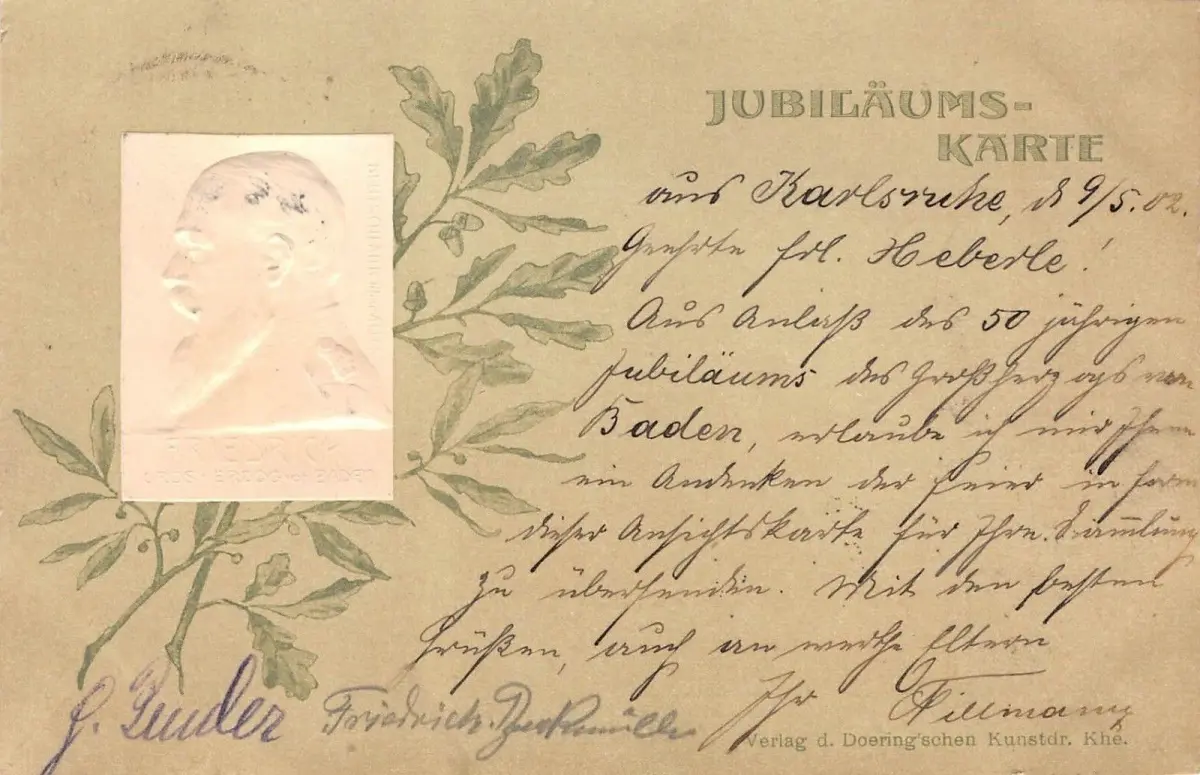 JUBILÄUMS-
KARTE
aus Karlsruhe, d 9/5.02.
Geehrte Frl. Heberle!
Aus Anlaß des 50 jährigen
Jubiläums des Großherzogs von
Baden, erlaube ich mir Ihnen
ein Andenken der Feier in Form
dieser Ansichtskarte für Ihre Sammlung
zu übersenden. Mit den besten
Grüßen, auch an werthe Eltern
Ihr Tillmann
FRIEDRICH
GROSHERZOG VON BADEN
Friedrich
Verlag d. Doering'schen Kunstdr. Khe.